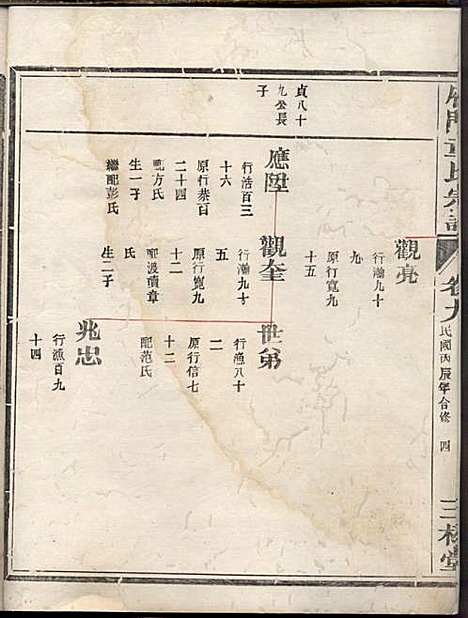 宗譜
卷九
民國丙辰年合修
四
三槐堂
觀亮
行瀚九十
九
原行寬九
十五
貞八十
九公長
子
應陞
行浩百三
十六
原行恭百
二十四
配方氏
生一子
繼配彭氏
觀奎
行瀚九十
五
原行寬九
十二
章
氏
生二子
世弟
行漁八十
二
原行信七
十二
配范氏
兆忠
行漁百九
十四